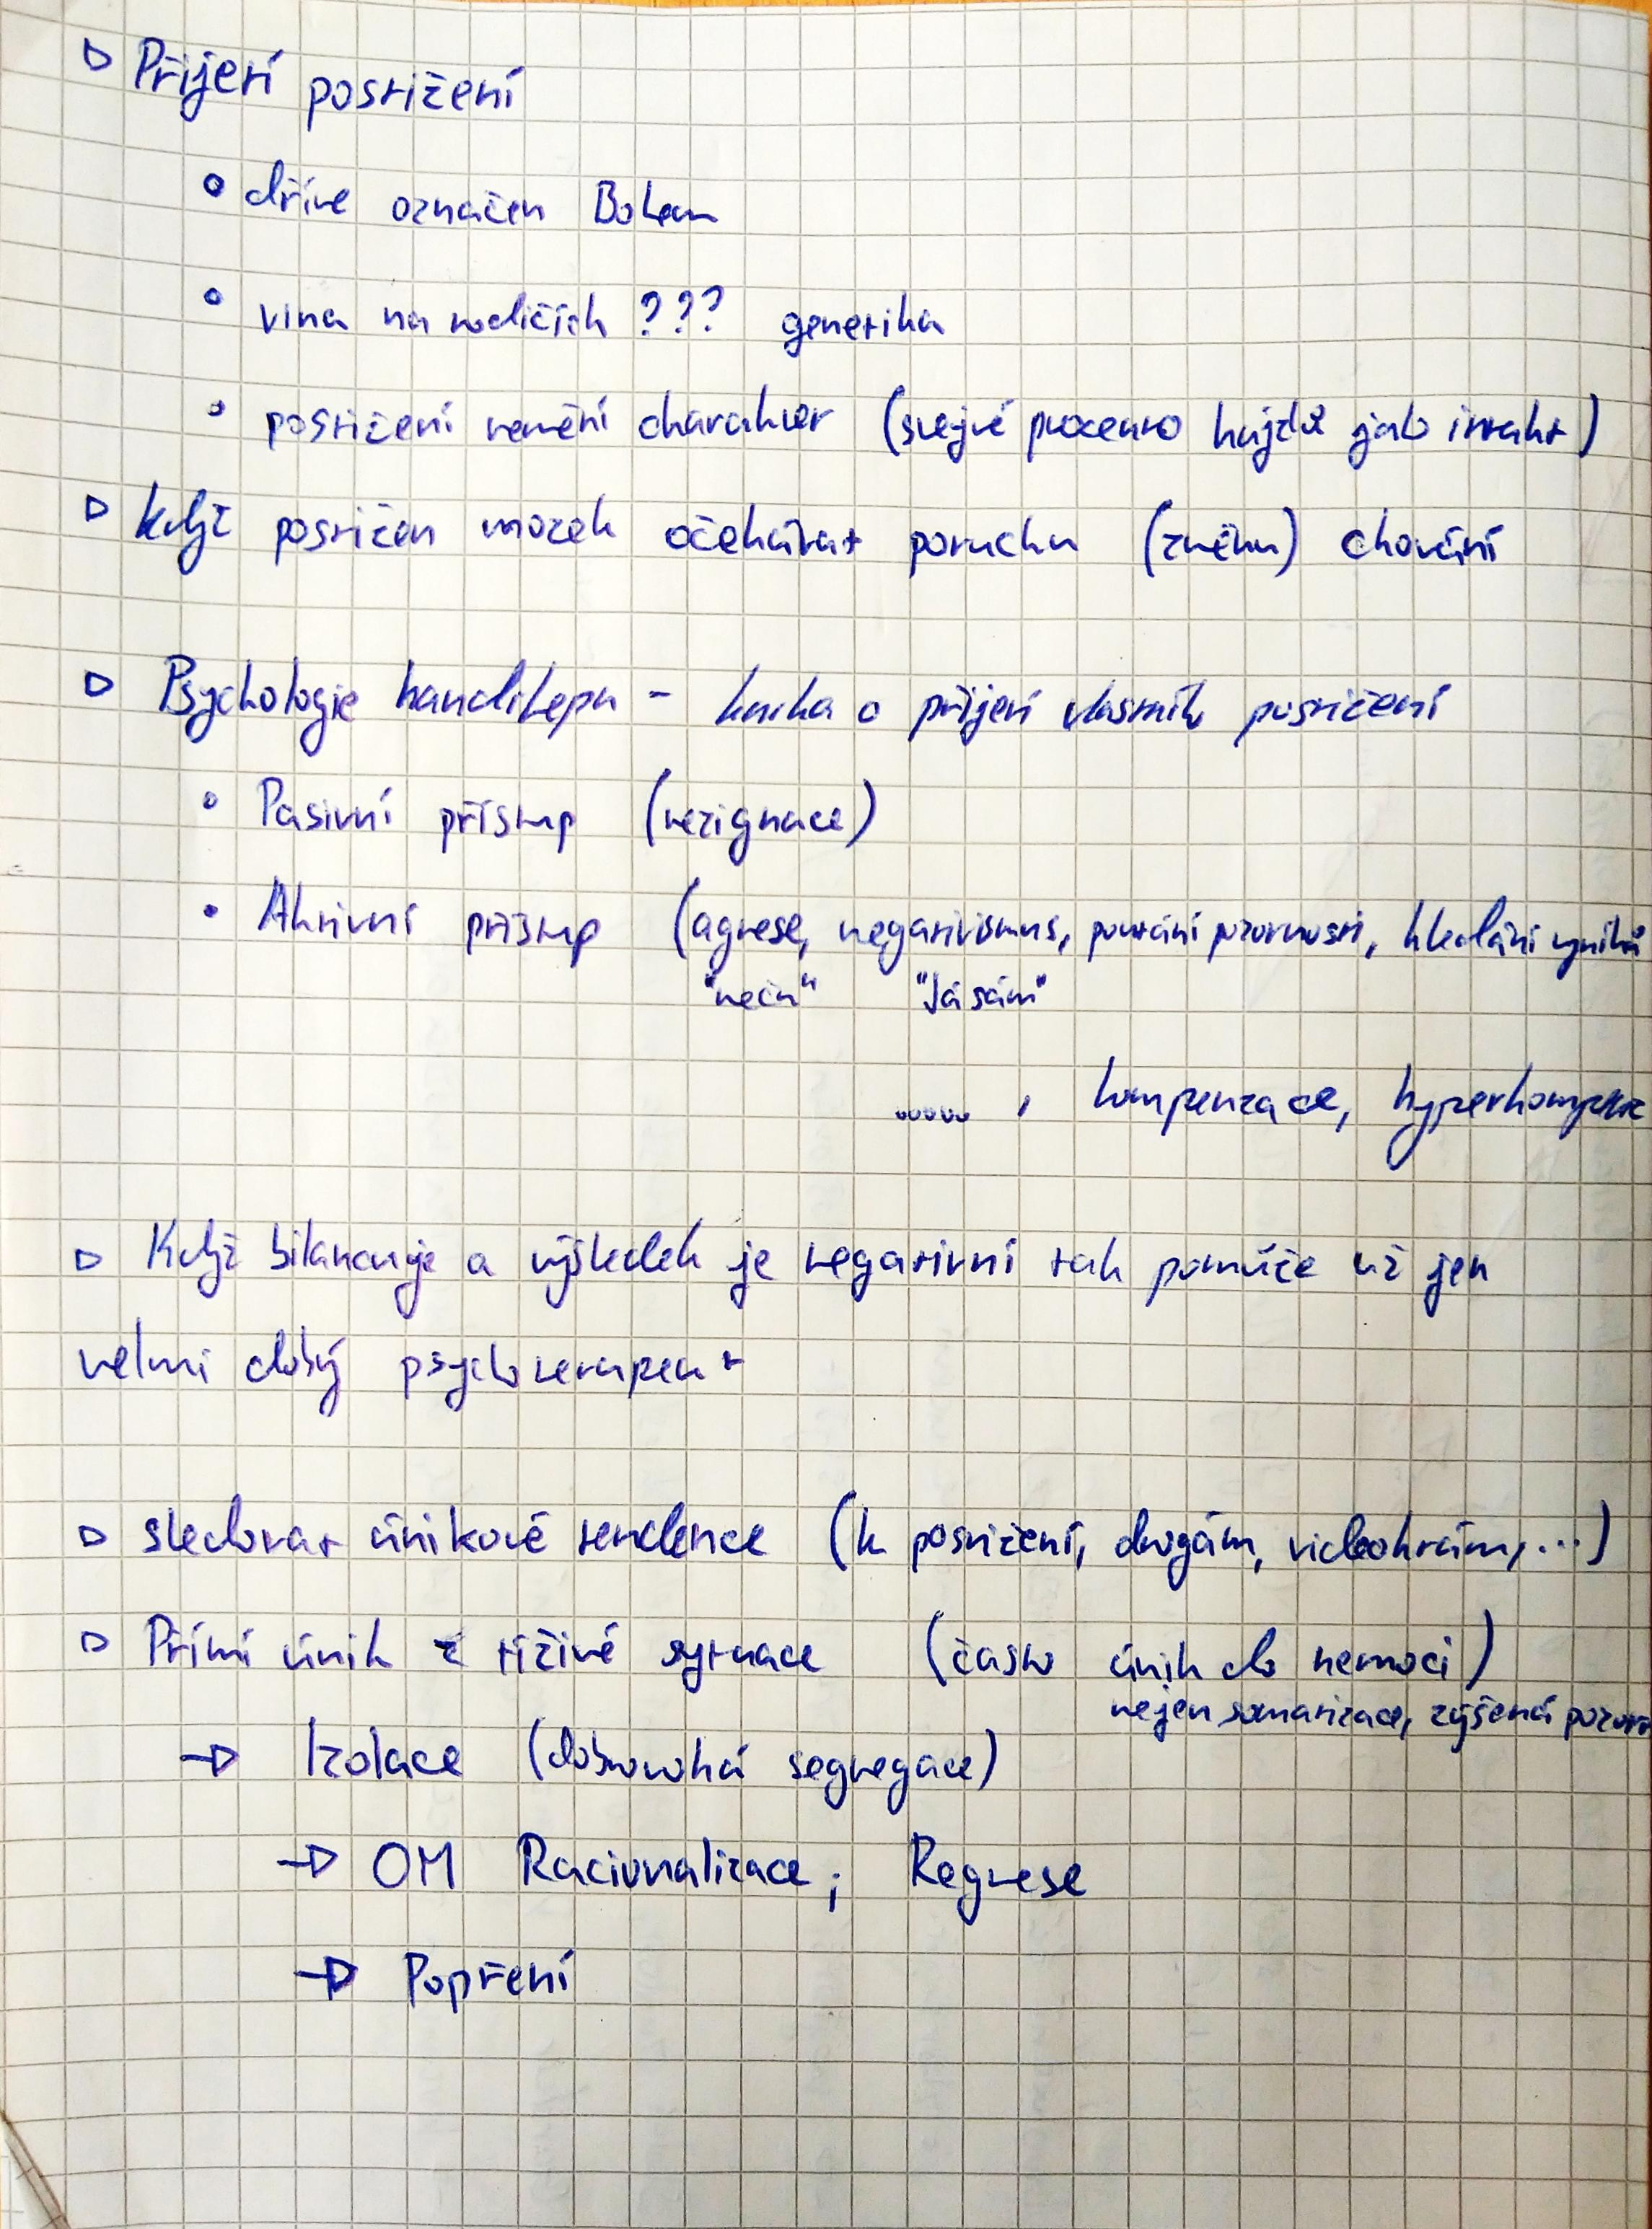 ▷ Přijetí postižení
• dříve označen Bohem
• vina na rodičích ??? genetika
• postižení nemění charakter (stejné procento hajzlů jako intakt)
▷ když postižen mozek očekávat poruchu (změnu) chování
▷ Psychologie handikepu - kniha o přijetí vlastního postižení
• Pasivní přístup (rezignace)
• Aktivní přístup (agrese, negativismus, poutání pozornosti, hledání viníků
"něčin" "Já sám"
....., kompenzace, hyperkompenz
▷ Když bilancuje a výsledek je negativní tak pomůže už jen
velmi dobrý psychoterapeut
▷ sledovat únikové tendence (k postižení, drogám, videohrám, ...)
▷ Přímí únik z tíživé sytuace (často únik do nemoci)
nejen somatizace, zvýšená pozorn
→ Izolace (dobrovolná segregace)
→ OM Racionalizace; Regrese
→ Popření